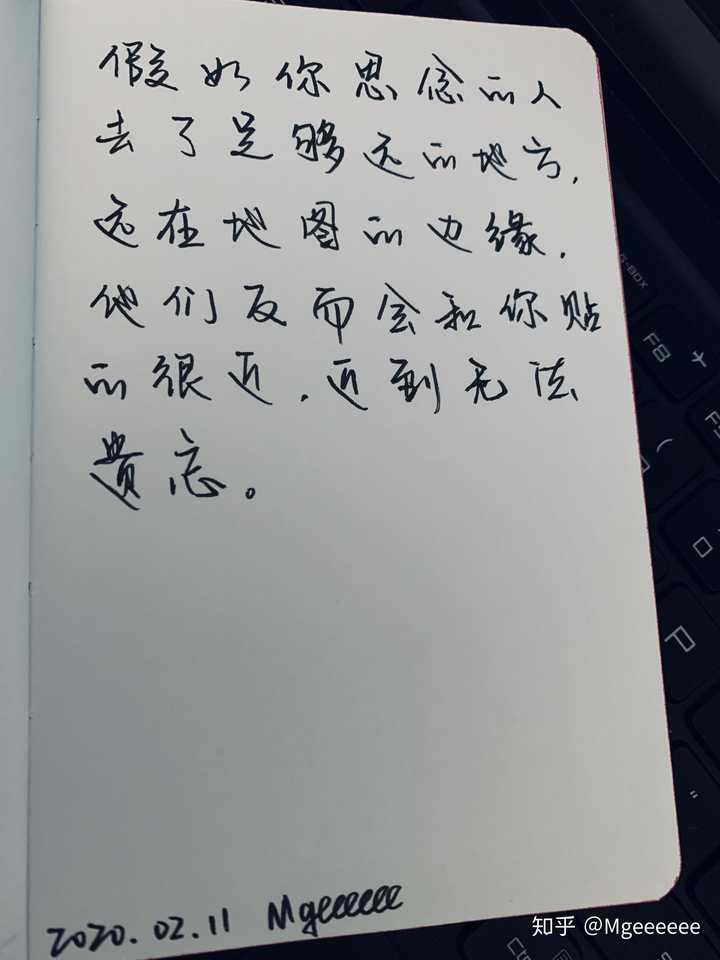 假如你思念的人
去了足够远的地方,
远在地图的边缘,
他们反而会和你贴
的很近,近到无法
遗忘。
2020.02.11 Mgeeeeee
G-BOX
F8
P
知乎 @Mgeeeeee